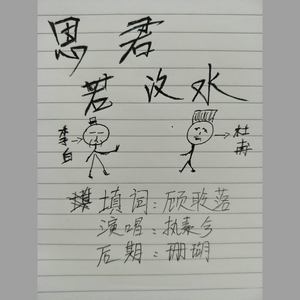 思君
若汶水
李白
杜甫
填词：顾敢落
演唱：执素兮
后期：珊瑚